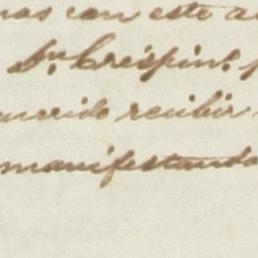 mas con este a
Sn. Crispin.
querido recibir
manifestando